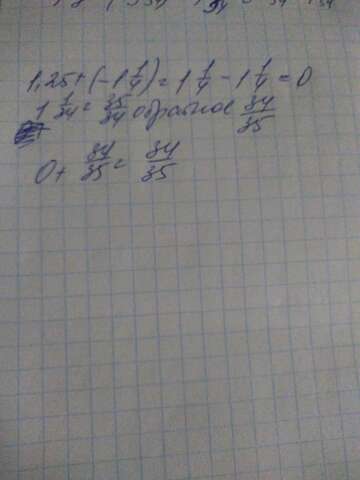 1,25 + (-1 1/4) = 1 1/4 - 1 1/4 = 0
1 1/34 = 35/34 обратное 34/35
0 + 34/35 = 34/35